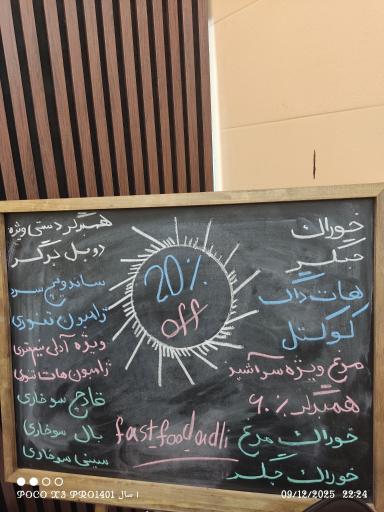 خوراک
جیگر
هات داگ
کوکتل
مرغ ویژه سرآشپز
همبرگر ٪۶۰
خوراک مرغ
خوراک جیگر
20%
off
fast_food_adli
همبرگر دستی ویژه
دوبل برگر
ساندویچ سرد
ژامبون تنوری
ویژه آدلی پپرونی
ژامبون هات تنوری
قارچ سوخاری
بال سوخاری
سینی سوخاری
POCO X3 PRO1401 اسال
09/12/2025 22:24